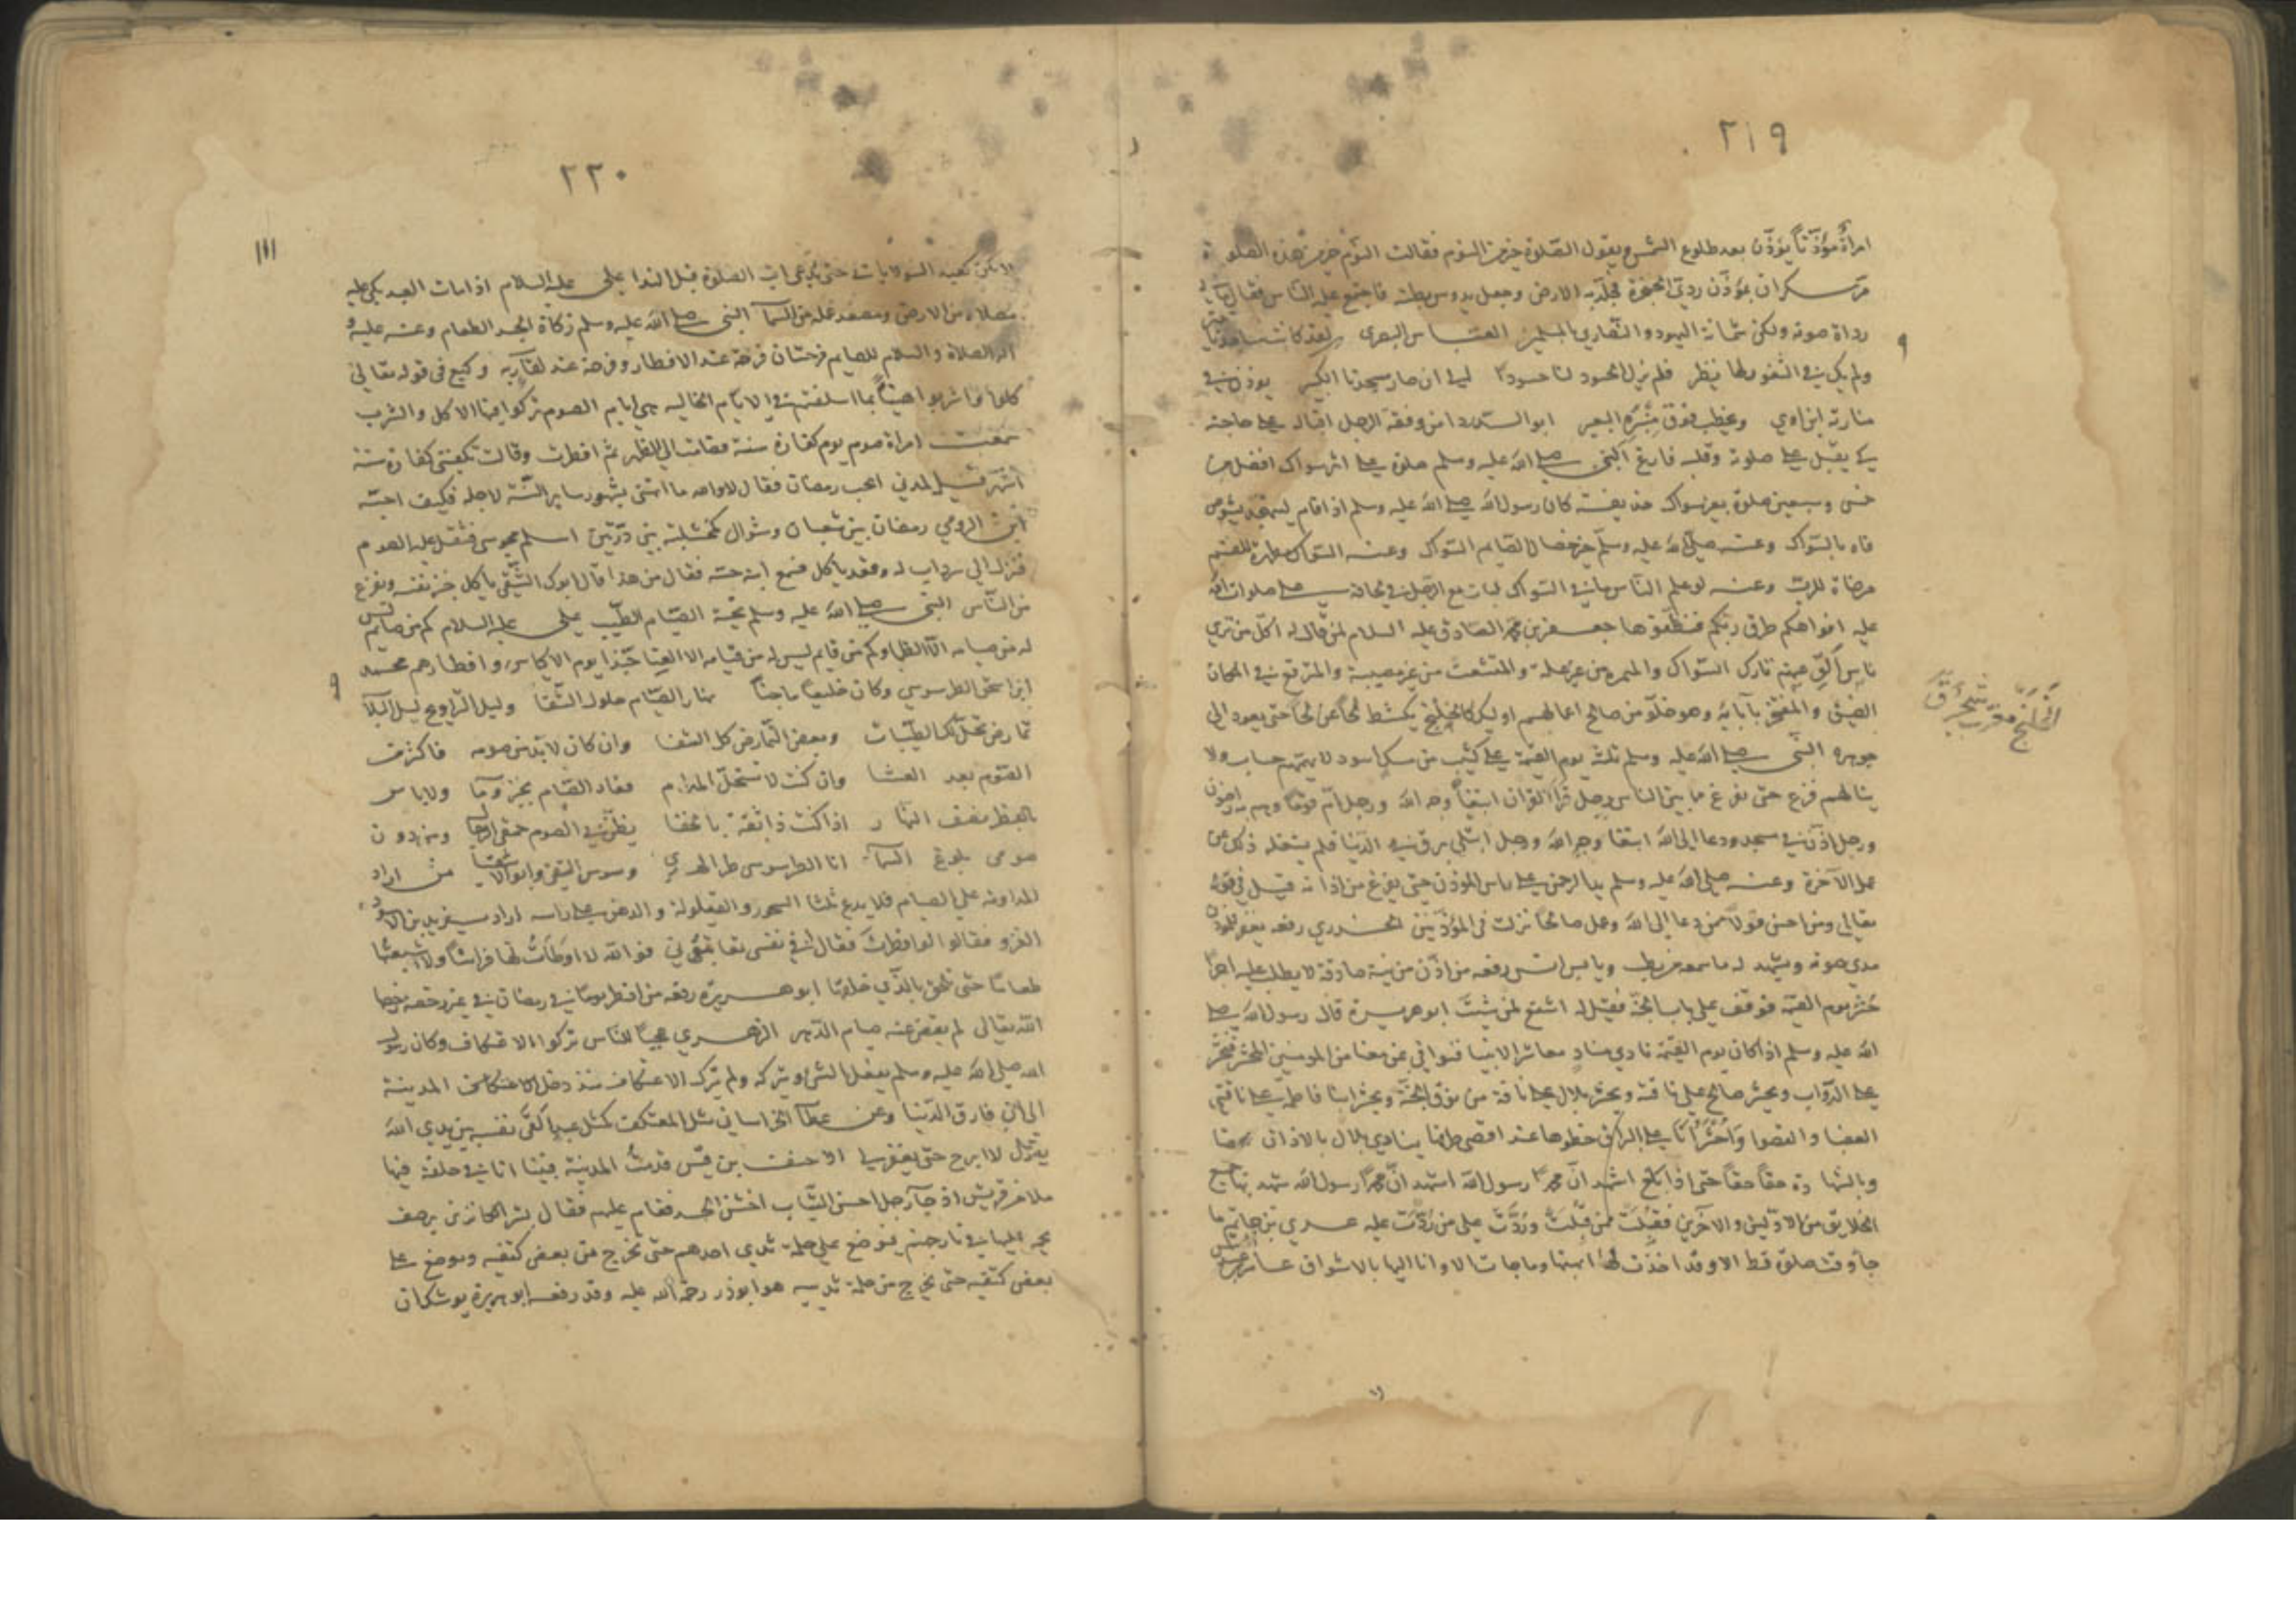 ٢١٩
امرأة مؤذنا يؤذن بعد طلوع الشمس ويقول الصلوة خير من النوم فقالت النوم خير من هذه الصلوة
مر سكران بمؤذن ردي الحنجرة فجلد به الارض وجعل يدوس بطنه فاجتمع عليه الناس فقال ما بي
رداة صوته ولكن شماتة اليهود والنصاري بالمسلمين العباس البصري لقد كانت مساجدنا
ولم يك في الثغور لها نظير فلم يزل الحسود لنا حسودا الى ان صار مسجدنا الكبير يوذن في
منارته ابن اوي ويخطب فوق منبره البعير ابو الدرداء من فقه الرجل اقباله على حاجته
كي يقبل على صلوته وقلبه فارغ النبي صلى الله عليه وسلم صلوة على اثر سواك افضل من
خمس وسبعين صلوة بغير سواك حذيفة كان رسول الله صلى الله عليه وسلم اذا قام ليتهجد يشوص
فاه بالسواك وعنه صلى الله عليه وسلم خير خصال الصايم السواك وعنه السواك مطهرة للفم
مرضاة للرب وعنه لو علم الناس ما في السواك لبات مع الرجل في لحافه علي صلوات الله
عليه افواهكم طرق ربكم فنظفوها جعفر بن محمد الصادق عليه السلام لمن قال له اكل من تري
ناس الق منهم تارك السواك والمتربع في المكان
الضيق والمفتخر بآبايه وهو خلو من صالح اعمالهم اوليك كالخلنج يكشط لحا عن لحا حتى يعود الى
جوهره النبي صلى الله عليه وسلم ثلثة يوم القيمة على كثيب من مسك اسود لا يهمهم حساب ولا
ينالهم فزع حتى يفرغ ما بين الناس رجل قرأ القرآن ابتغا وجه الله ورجل ام قوما وهم به راضون
ورجل اذن في مسجد ودعا الى الله ابتغا وجه الله ورجل ابتلي برق في الدنيا فلم يشغله ذلك عن
عمل الآخرة وعنه صلى الله عليه وسلم يد الرحمن على راس المؤذن حتى يفرغ من اذانه قيل في قوله
تعالى ومن احسن قولا ممن دعا الى الله وعمل صالحا نزلت في المؤذنين الخدري رفعه يغفر للمؤذن
مدي صوته ويشهد له ما سمعه من رطب ويابس انس رفعه من اذن من نية صادقة لا يطلب عليه اجرا
حشر يوم القيمة فوقف على باب الجنة فقيل له اشفع لمن شئت ابو هريرة قال رسول الله صلى
الله عليه وسلم اذا كان يوم القيمة نادي مناد معاشر الانبيا المحشر فنحشر
على الدواب ويحشر صالح على ناقته ويحشر بلال على ناقة من نوق الجنة ويحشر ابنا فاطمة على ناقتي
العضبا والقصوا واحشر انا على البراق خطوها عند اقصى طرفها ينادي بلال بالاذان محضا
وبالشهادة حقا حقا حتى اذا بلغ اشهد ان محمدا رسول الله اشهد ان محمدا رسول الله شهد بها جميع
الخلايق من الاولين والآخرين فقبلت ممن قبلت وردت على من ردت عليه عدي بن حاتم ما
جا وقت صلوة قط الا وقد اخذت لها اهبتها وما جات الا وانا اليها بالاشواق عامر بن
الخلنج معرب شجر
٢٢٠
١١١
حتى يدعى ايت الصلوة قبل الندا علي عليه السلام اذا مات العبد بكي عليه
مصلاه من الارض ومصعد عمله من السما النبي صلى الله عليه وسلم زكاة الجسد الطعام وعنه عليه و
اله الصلاة والسلام للصايم فرحتان فرحة عند الافطار وفرحة عند لقا ربه وكيع في قوله تعالي
كلوا واشربوا هنيا بما اسلفتم في الايام الخاليه هي ايام الصوم تركوا فيها الاكل والشرب
سمعت امراة صوم يوم كفارة سنة فصامت الي الظهر ثم افطرت وقالت يكفيني كفارة ستة
اشهر قيل لمدني اتحب رمضان فقال لاوالله ما اتهنى بشهور ساير السنة لاجله فكيف احبه
ابن الرومي رمضان بين شعبان وشوال كخشلبة بين درتين اسلم مجوسي فثقل عليه الصوم
فنزل الي سرداب له وقعد ياكل فسمع ابنه حسه فقال من هذا قال ابوك الشقي ياكل خبز نفسه ويفزع
من الناس النبي صلى الله عليه وسلم تحية الصايم الطيب علي عليه السلام كم من صايم ليس
له من صيامه الا الظما وكم من قايم ليس له من قيامه الا العنا حبذا نوم الاكياس وافطارهم محمد
ابن اسحق الطرسوسي وكان خليعا ماجنا نهار الصيام حلول الشقا وليل التراويح ليل البلا
تمارض تحل لك الطيبات وبعض التمارض كل الشفا وان كان لا بد من صومه فاكثر من
النوم بعد العشا وان كنت لا تستحل المدام فعاد الصيام بخبز وما ولا باس
بالفطر نصف النهار اذا كنت ذا ثقة بالخفا يظن في الصوم حمقي الرجال ومن دون
صومي بلوغ السما انا الطرسوسي طر الهدي وسوس التقى من اراد
المداومة على الصيام فلا يدع ثلثا السحور والقيلولة والدهن على راسه اراد سعيد بن
الغزو فقالوا لو افطرت فقال فوالله لا اوطأت لها فراشا ولا اشبعتها
طعاما حتى تلحق بالذي خلقها ابو هريرة رفعه من افطر يوما في رمضان في غير رخصة رخصها
الله تعالي لم يقض عنه صيام الدهر الزهري عجبا للناس تركوا الاعتكاف وكان رسول
الله صلى الله عليه وسلم يفعل الشي ويتركه ولم يترك الاعتكاف منذ دخل المدينة
الى ان فارق الدنيا وعن عطا الخراساني مثل المعتكف كمثل عبد القى نفسه بين يدي الله
يقول لا ابرح حتى يغفر لي الاحنف بن قيس قدمت المدينة فبينا انا في حلقة فيها
ملا من قريش اذ جا رجل اخشن الثياب اخشن الجسد فقام عليهم فقال بشر الكانزين برضف
يحمي عليها في نار جهنم فيوضع على حلمة ثدي احدهم حتى تخرج من بعض كتفيه ويوضع على
بعض كتفيه حتى يخرج من حلمة ثدييه هو ابوذر رحمة الله عليه وقد رفعه ابو هريرة يوشك ان